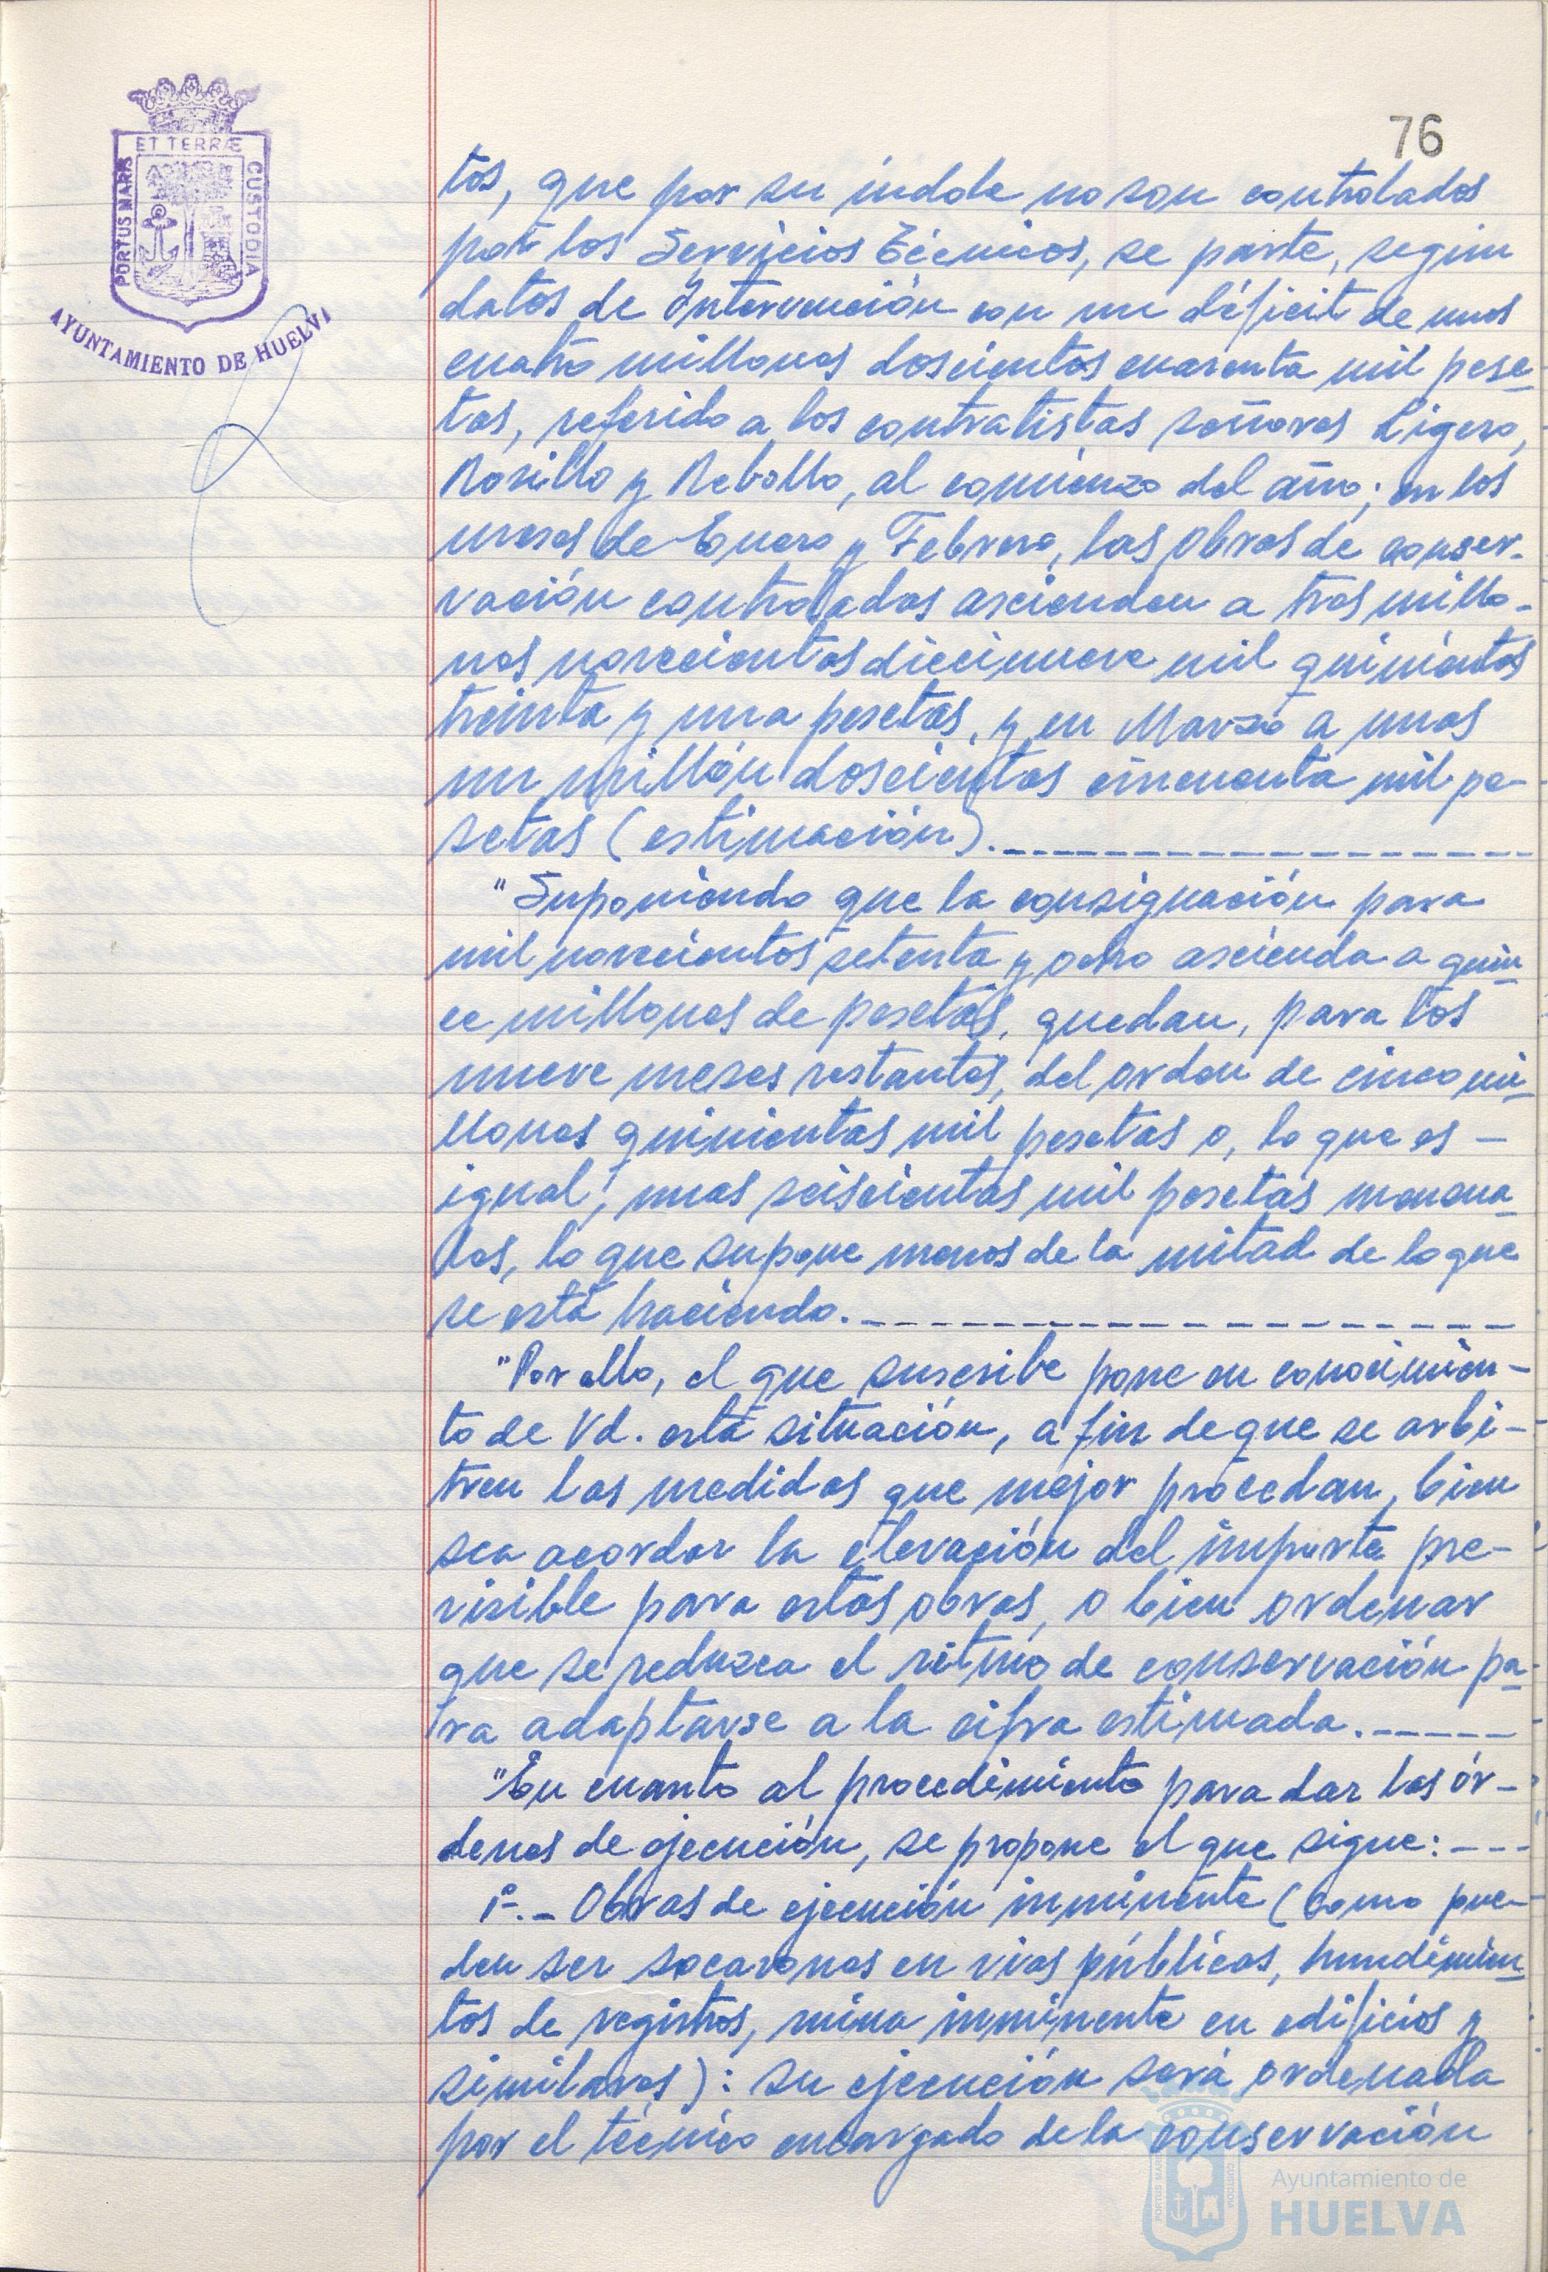 76
ET TERRÆ
PORTUS MARIS
CUSTODIA
AYUNTAMIENTO DE HUELVA
tos, que por su índole no son controlados
por los Servicios Técnicos, se parte, según
datos de Intervención con un déficit de unos
cuatro millones doscientos cuarenta mil pese-
tas, referido a los contratistas señores Ligero,
Rosillo y Rebollo, al comienzo del año; en los
meses de Enero y Febrero, las obras de conser-
vación controladas ascienden a tres millo-
nes novecientos diecinueve mil quinientos
treinta y una pesetas, y en Marzo a unos
un millón doscientas cincuenta mil pe-
setas (estimación).
"Suponiendo que la consignación para
mil novecientos setenta y ocho ascienda a quin-
ce millones de pesetas, quedan, para los
nueve meses restantes, del orden de cinco mi-
llones quinientas mil pesetas o, lo que es -
igual, unas seiscientas mil pesetas mensua-
les, lo que supone menos de la mitad de lo que
se está haciendo.
"Por ello, el que suscribe pone en conocimien-
to de Vd. esta situación, a fin de que se arbi-
tren las medidas que mejor procedan, bien
sea acordar la elevación del importe pre-
visible para estas obras, o bien ordenar
que se reduzca el ritmo de conservación pa-
ra adaptarse a la cifra estimada.
"En cuanto al procedimiento para dar las ór-
denes de ejecución, se propone el que sigue:
1º.- Obras de ejecución inminente (como pue-
den ser socavones en vías públicas, hundimien-
tos de registros, ruina inminente en edificios y
similares): su ejecución será ordenada
por el técnico encargado de la conservación
Ayuntamiento de
HUELVA